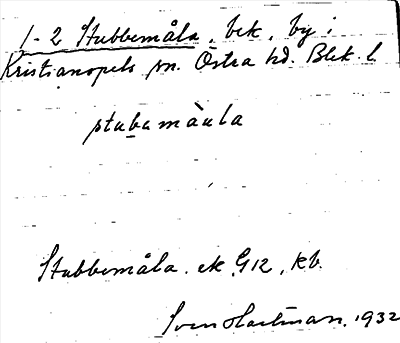 1-2 Stubbemåla, bek, by i
Kristianopels sn. Östra hd. Blek. l.
stubamàula
Stubbemåla. ek G12, kb.
Sven Hartman. 1932